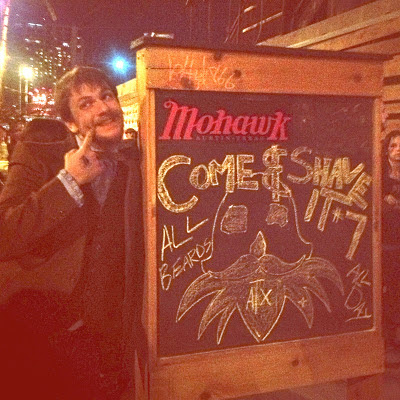 Mohawk
AUSTIN·TEXAS
COME & SHAVE
IT*7
ALL
BEARDS
ATX